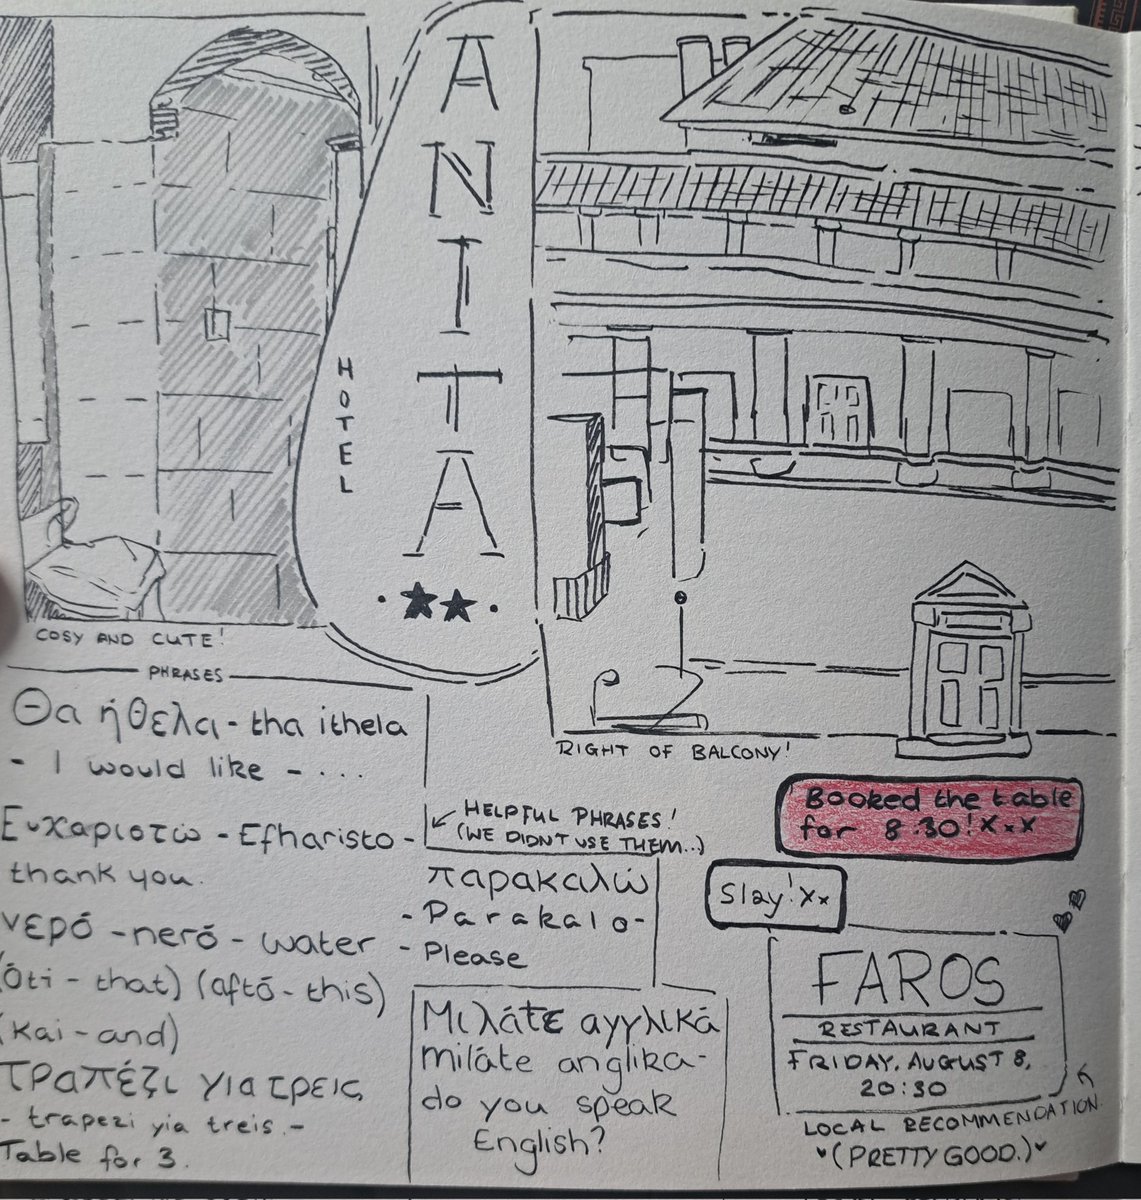 ANITA
HOTEL
COSY AND CUTE!
PHRASES
Θα ήθελα - tha ithela
- I would like - ...
Ευχαριστώ - Efharisto -
thank you.
νερό - neró - water
(óti - that) (aftó - this)
(kai - and)
Τραπέζι για τρεις
- trapezi yia treis. -
Table for 3.
HELPFUL PHRASES!
(WE DIDN'T USE THEM..)
παρακαλώ
- Parakalo -
- Please
Μιλάτε αγγλικά
miláte anglika -
do you speak
English?
RIGHT OF BALCONY!
Booked the table
for 8:30! x x x
Slay! xx
FAROS
RESTAURANT
FRIDAY, AUGUST 8,
20:30
LOCAL RECOMMENDATION.
(PRETTY GOOD.)